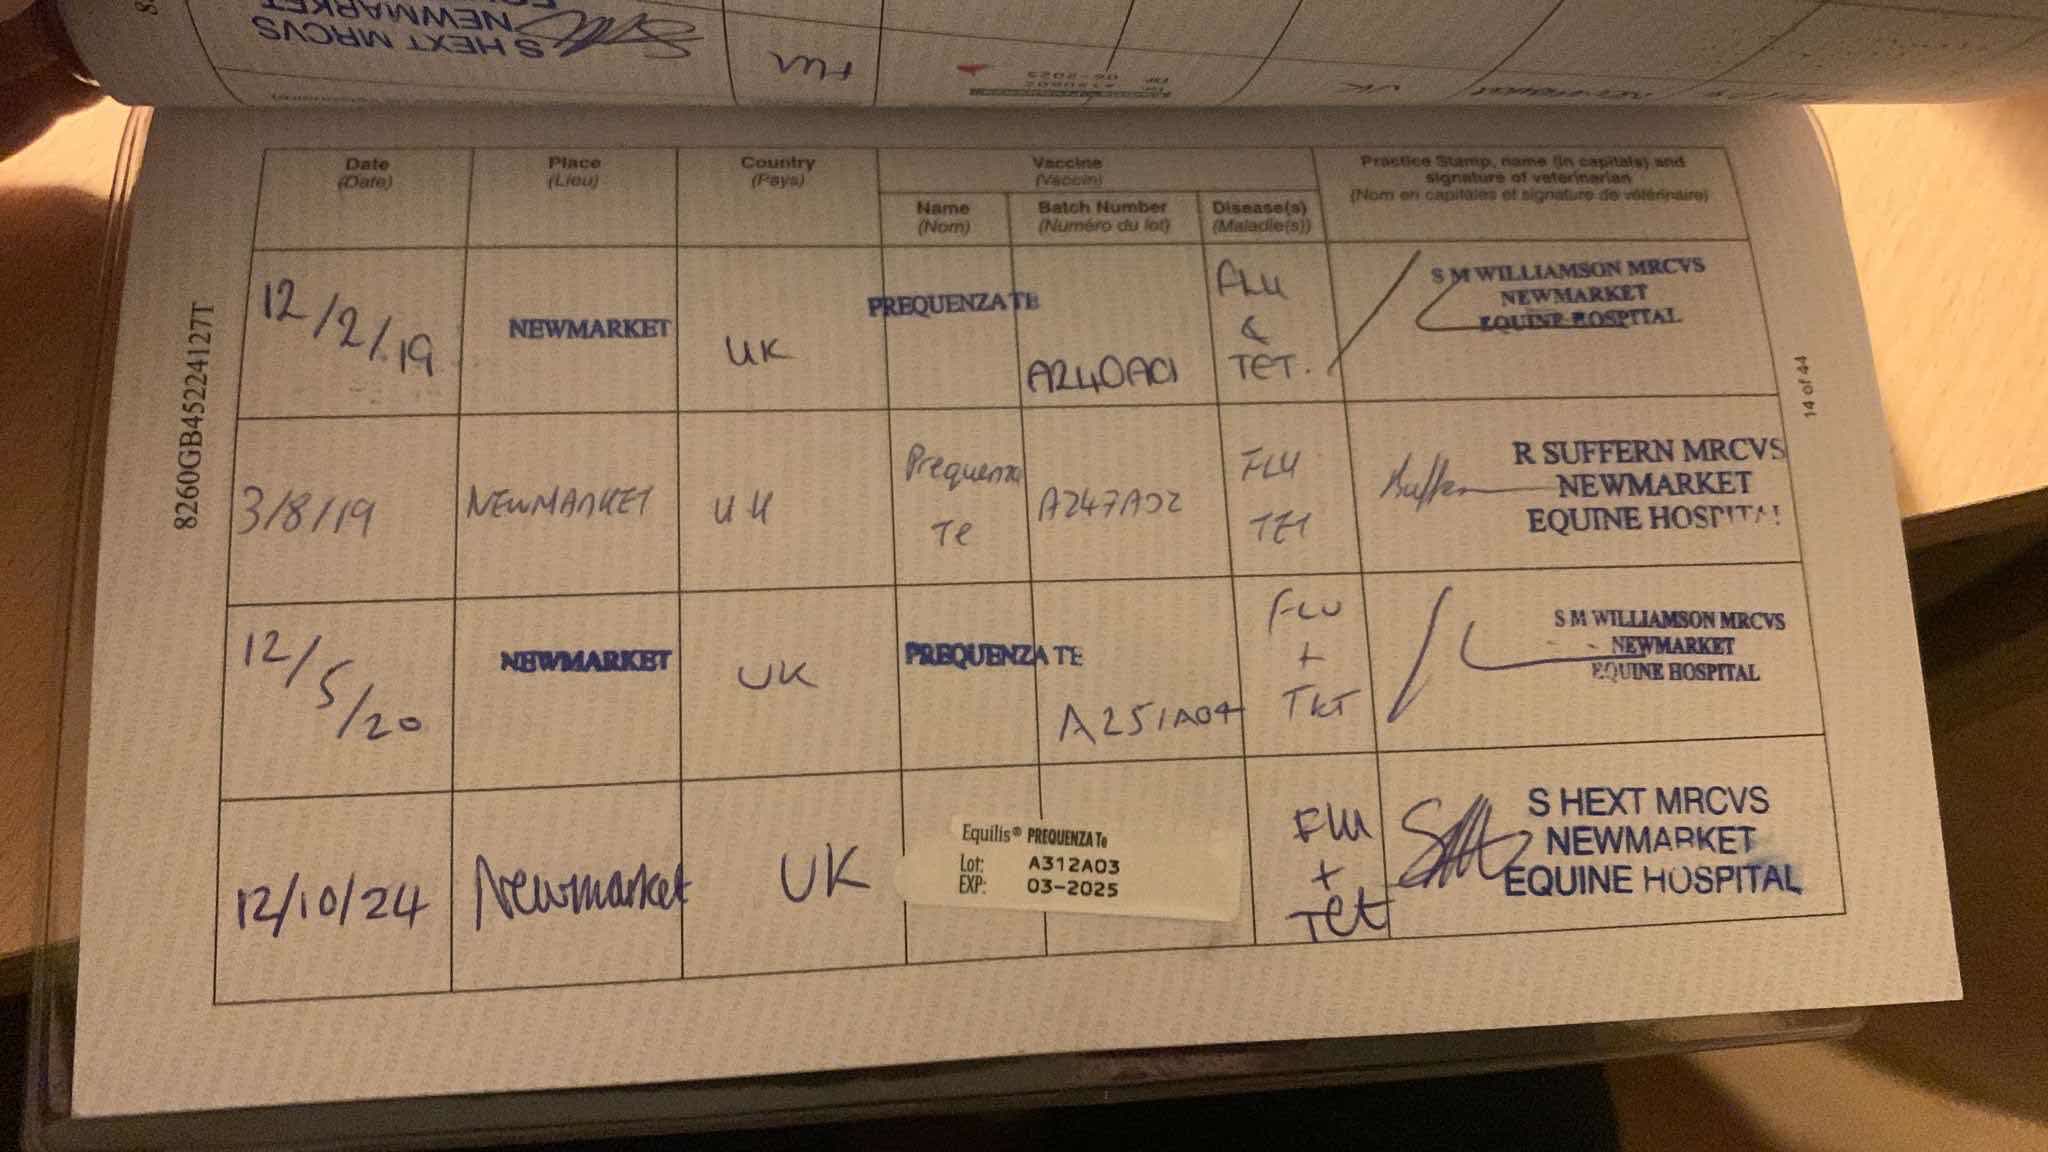 S HEXT MRCVS
NEWMARKET
Flu
UK
06-2025
Date
(Date)
Place
(Lieu)
Country
(Pays)
Vaccine
(Vaccin)
Practice Stamp, name (in capitals) and
signature of veterinarian
(Nom en capitales et signature de vétérinaire)
Name
(Nom)
Batch Number
(Numéro du lot)
Disease(s)
(Maladie(s))
12/2/19
NEWMARKET
UK
PREQUENZA TE
A240AC1
FLU
&
TET.
S M WILLIAMSON MRCVS
NEWMARKET
EQUINE HOSPITAL
3/8/19
NEWMARKET
UK
Prequenza
Te
A247A02
FLU
TET
R SUFFERN MRCVS
NEWMARKET
EQUINE HOSPITAL
12/5/20
NEWMARKET
UK
PREQUENZA TE
A251A04
FLU
+
TET
S M WILLIAMSON MRCVS
NEWMARKET
EQUINE HOSPITAL
12/10/24
Newmarket
UK
Equilis® PREQUENZA Te
Lot: A312A03
EXP: 03-2025
Flu
+
Tet
S HEXT MRCVS
NEWMARKET
EQUINE HOSPITAL
8260GB45224127T
14 of 44